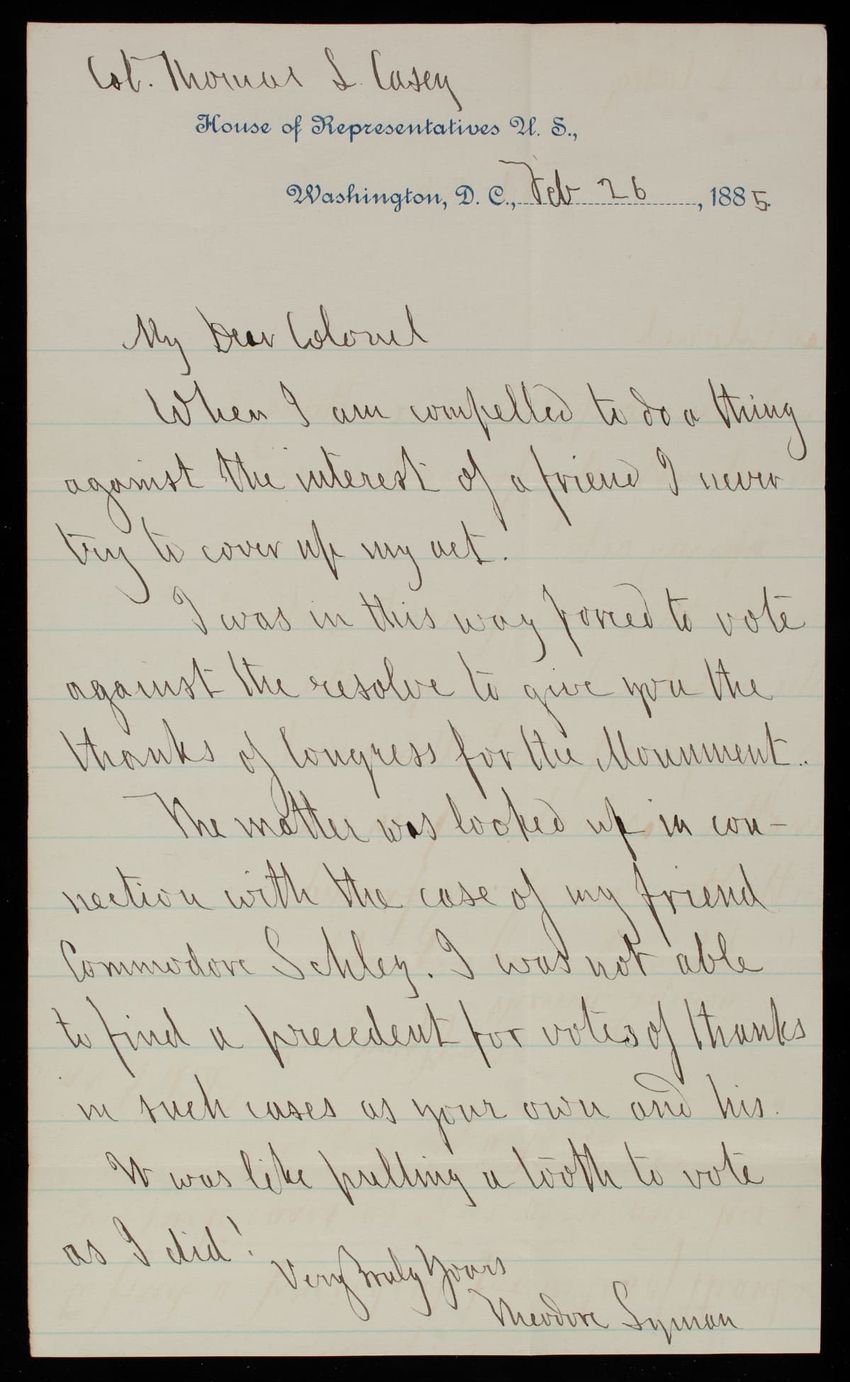 Col. Thomas L. Casey
House of Representatives U. S.,
Washington, D. C., Feb 26, 1885.
My Dear Colonel
When I am compelled to do a thing
against the interest of a friend I never
try to cover up my act.
I was in this way forced to vote
against the resolve to give you the
thanks of Congress for the Monument.
The matter was looked up in con-
nection with the case of my friend
Commodore Schley. I was not able
to find a precedent for votes of thanks
in such cases as your own and his.
It was like pulling a tooth to vote
as I did!
Very Truly Yours
Theodore Lyman